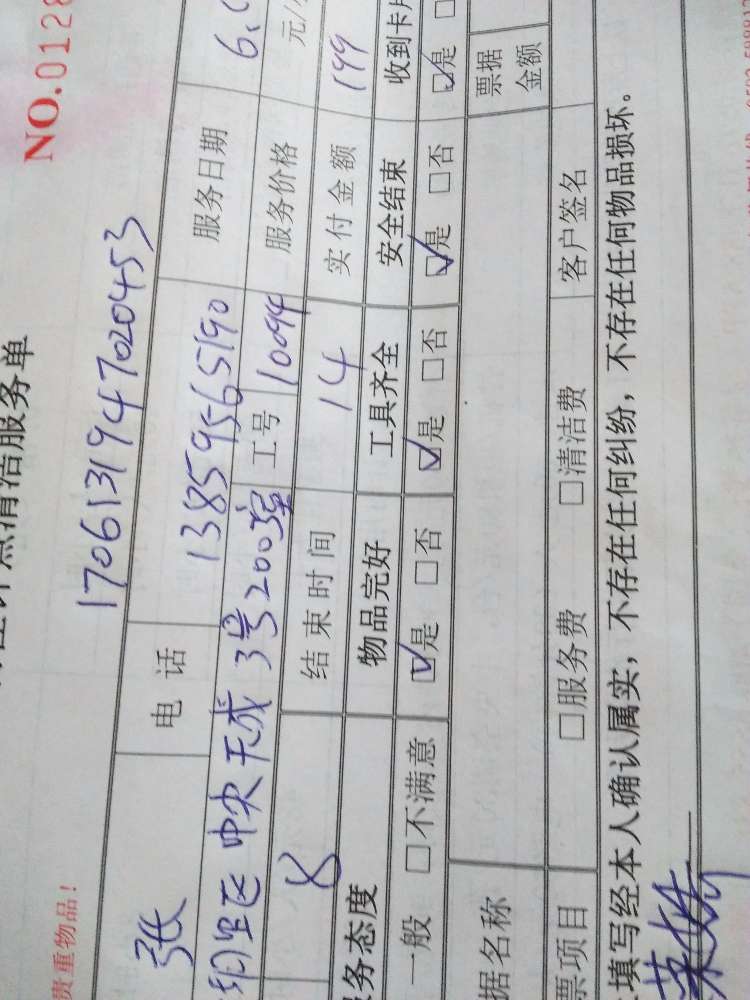 NO.0128
清洁服务单
贵重物品！
1706131947020453
张 电话 13859565190 服务日期 6.
中央天成3号200 工号 10094 服务价格 元/
8 结束时间 14 实付金额 199
务态度 物品完好 工具齐全 安全结束 收到卡片
一般 □不满意 ☑是 □否 ☑是 □否 ☑是 □否 ☑是
据名称 票据金额
票项目 □服务费 □清洁费 客户签名
填写经本人确认属实，不存在任何纠纷，不存在任何物品损坏。